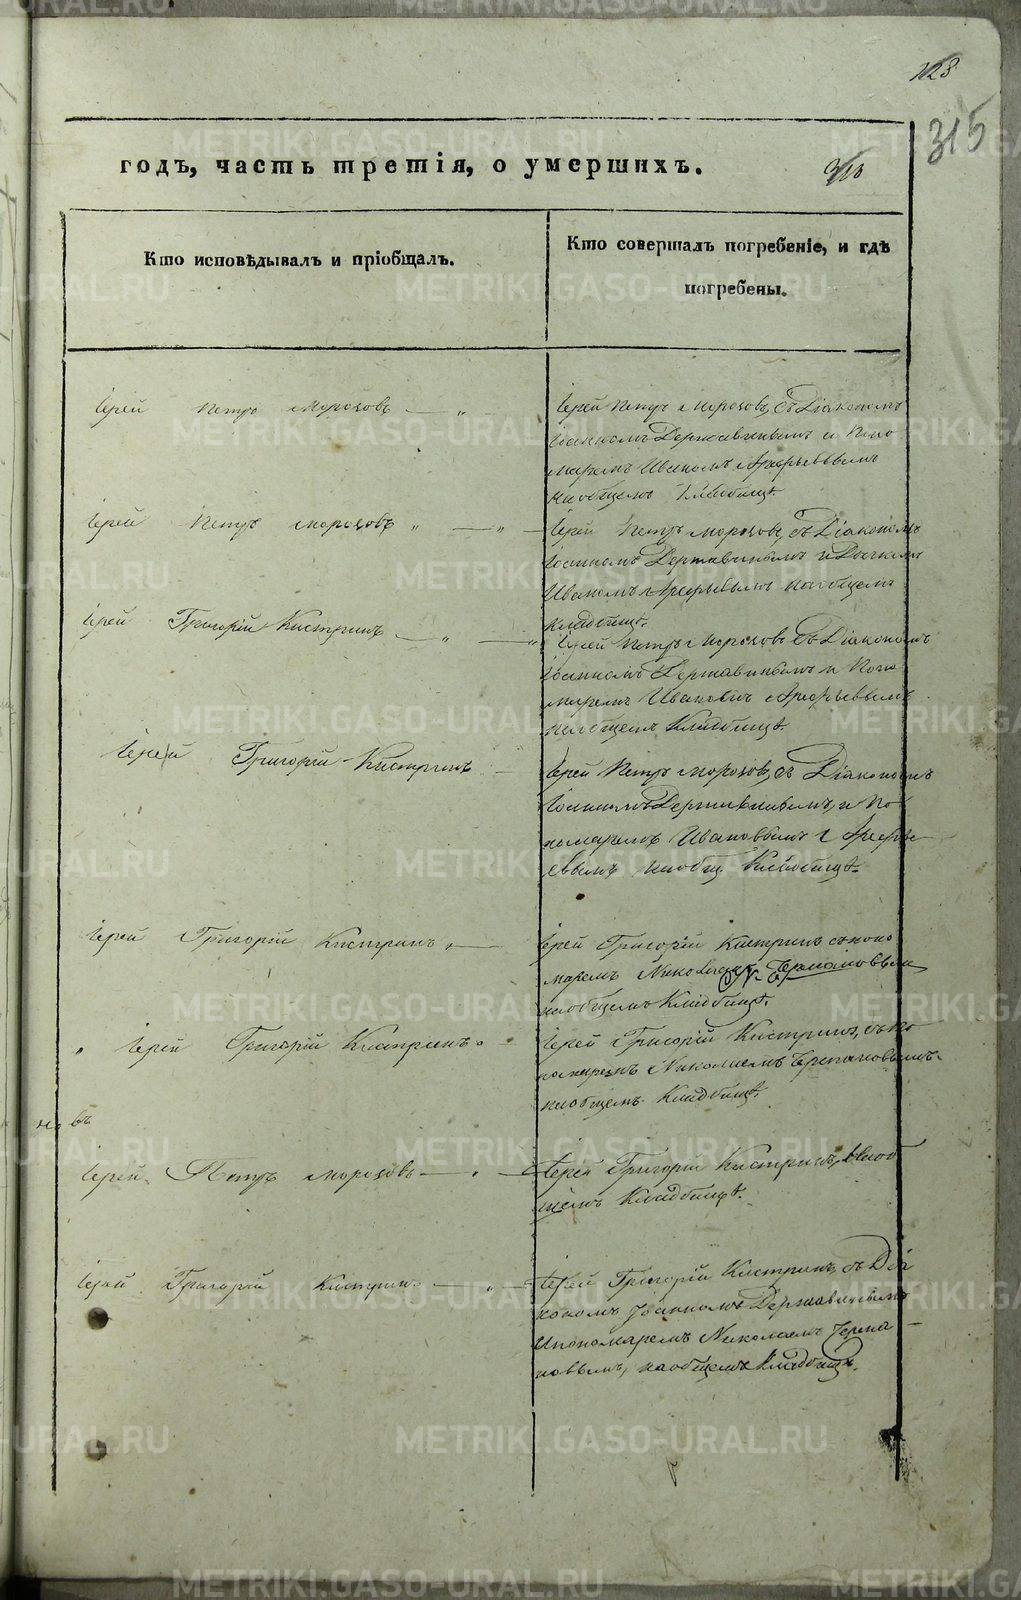 128
315
годъ, часть третія, о умершихъ.
Кто исповѣдывалъ и пріобщалъ.
Кто совершалъ погребеніе, и гдѣ
погребены.
Іерей Петръ Морозовъ
Іерей Петръ Морозовъ, съ Діакономъ
Іоанномъ Державинымъ и Поно
маремъ Иваномъ Арефьевымъ
на общемъ Кладбищѣ.
Іерей Петръ Морозовъ
Іерей Петръ Морозовъ, съ Діакономъ
Іоанномъ Державинымъ и
Иваномъ Арефьевымъ на общемъ
кладбищѣ.
Іерей Григорій Кистринъ
Іерей Петръ Морозовъ съ Діакономъ
Іоанномъ Державинымъ и Поно
маремъ Арефьевымъ
на общемъ Кладбищѣ.
Іерей Григорій Кистринъ
Іерей Петръ Морозовъ, съ Діакономъ
Іоанномъ Державинымъ, и По
номаремъ Ивановымъ Арефь
евымъ на общ. Кладбищѣ.
Іерей Григорій Кистринъ
Іерей Григорій Кистринъ съ поно
маремъ
на общемъ Кладбищѣ.
Іерей Григорій Кистринъ
Іерей Григорій Кистринъ, съ По
номаремъ Николаемъ Черепановымъ
на общемъ Кладбищѣ.
Іерей Петръ Морозовъ
Іерей Григорій Кистринъ,
щемъ Кладбищѣ.
Іерей Григорій Кистринъ
Іерей Григорій Кистринъ, съ Діа
кономъ Іоанномъ Державинымъ
и пономаремъ Николаемъ Черепа
новымъ, на общемъ Кладбищѣ.
METRIKI.GASO-URAL.RU